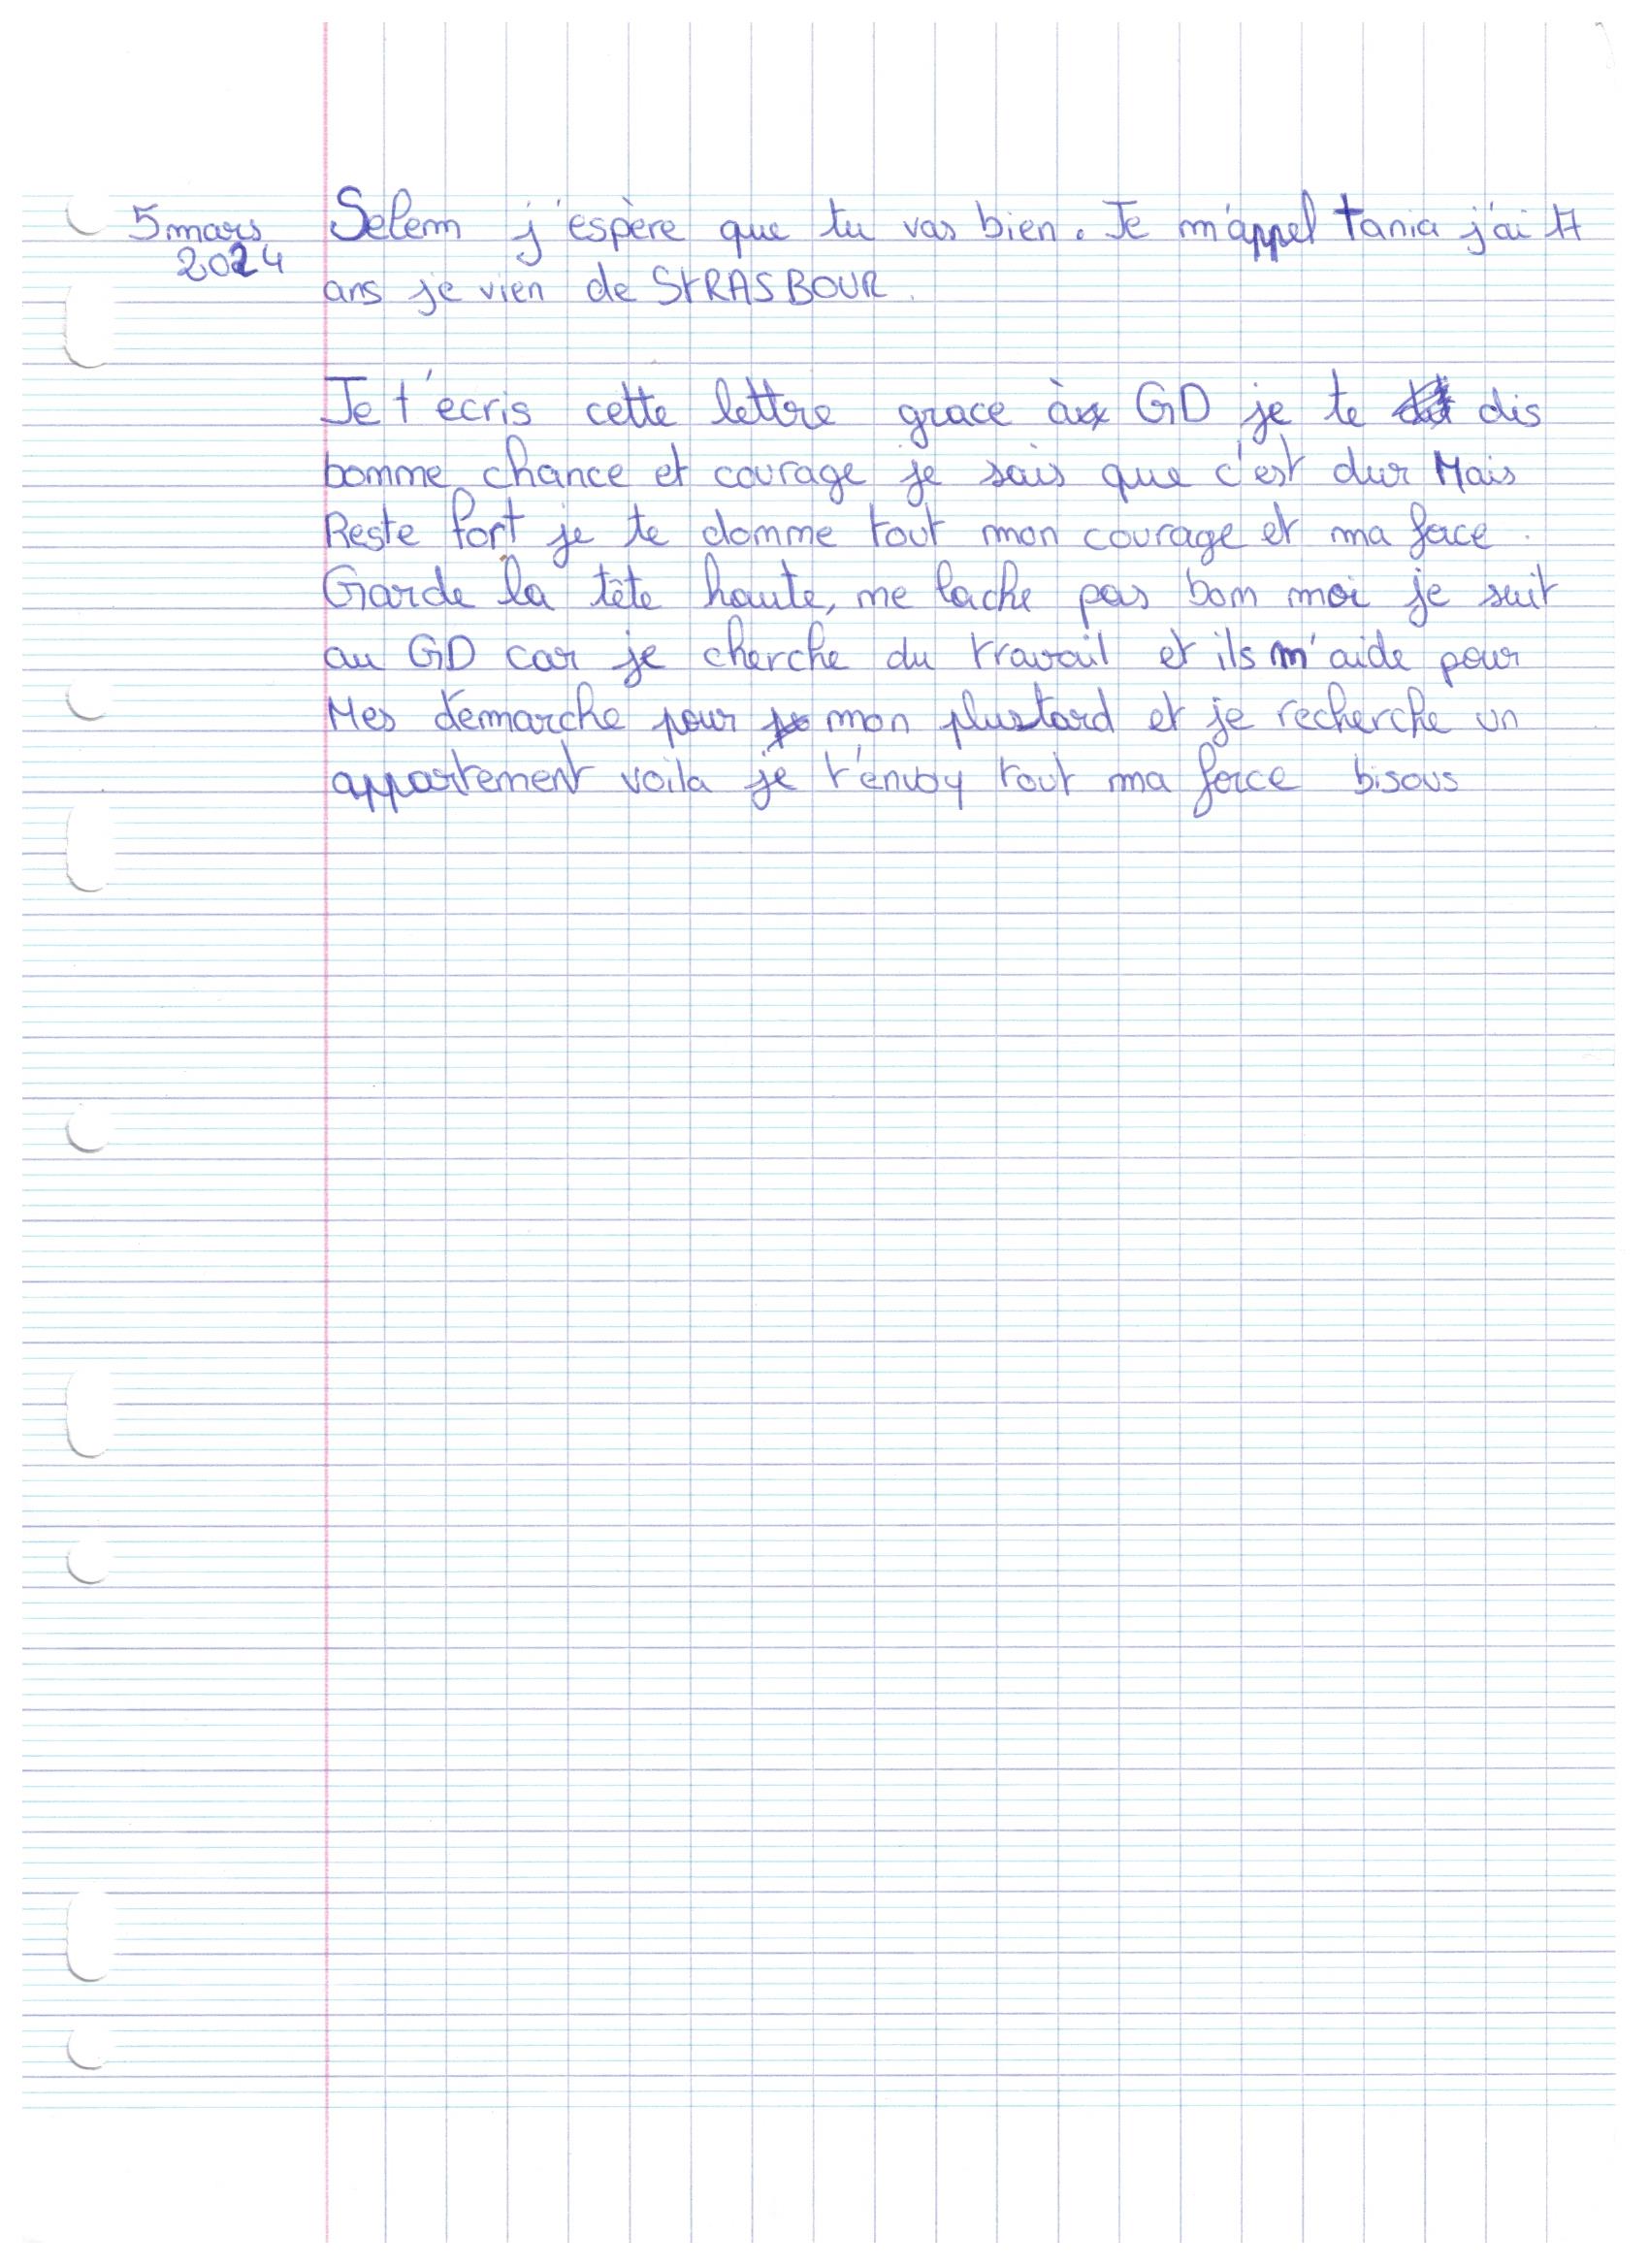 5 mars
2024
Selem j'espère que tu vas bien. Je m'appel tania j'ai 17
ans je vien de StRASBOUR.
Je t'écris cette lettre grace à GD je te dis
bonne chance et courage je sais que c'est dur Mais
Reste fort je te donne tout mon courage et ma force.
Garde la tête haute, ne lache pas bon moi je suit
au GD car je cherche du travail et ils m'aide pour
Mes démarche pour mon plustard et je recherche un
appartement voila je t'envoy tout ma force bisous